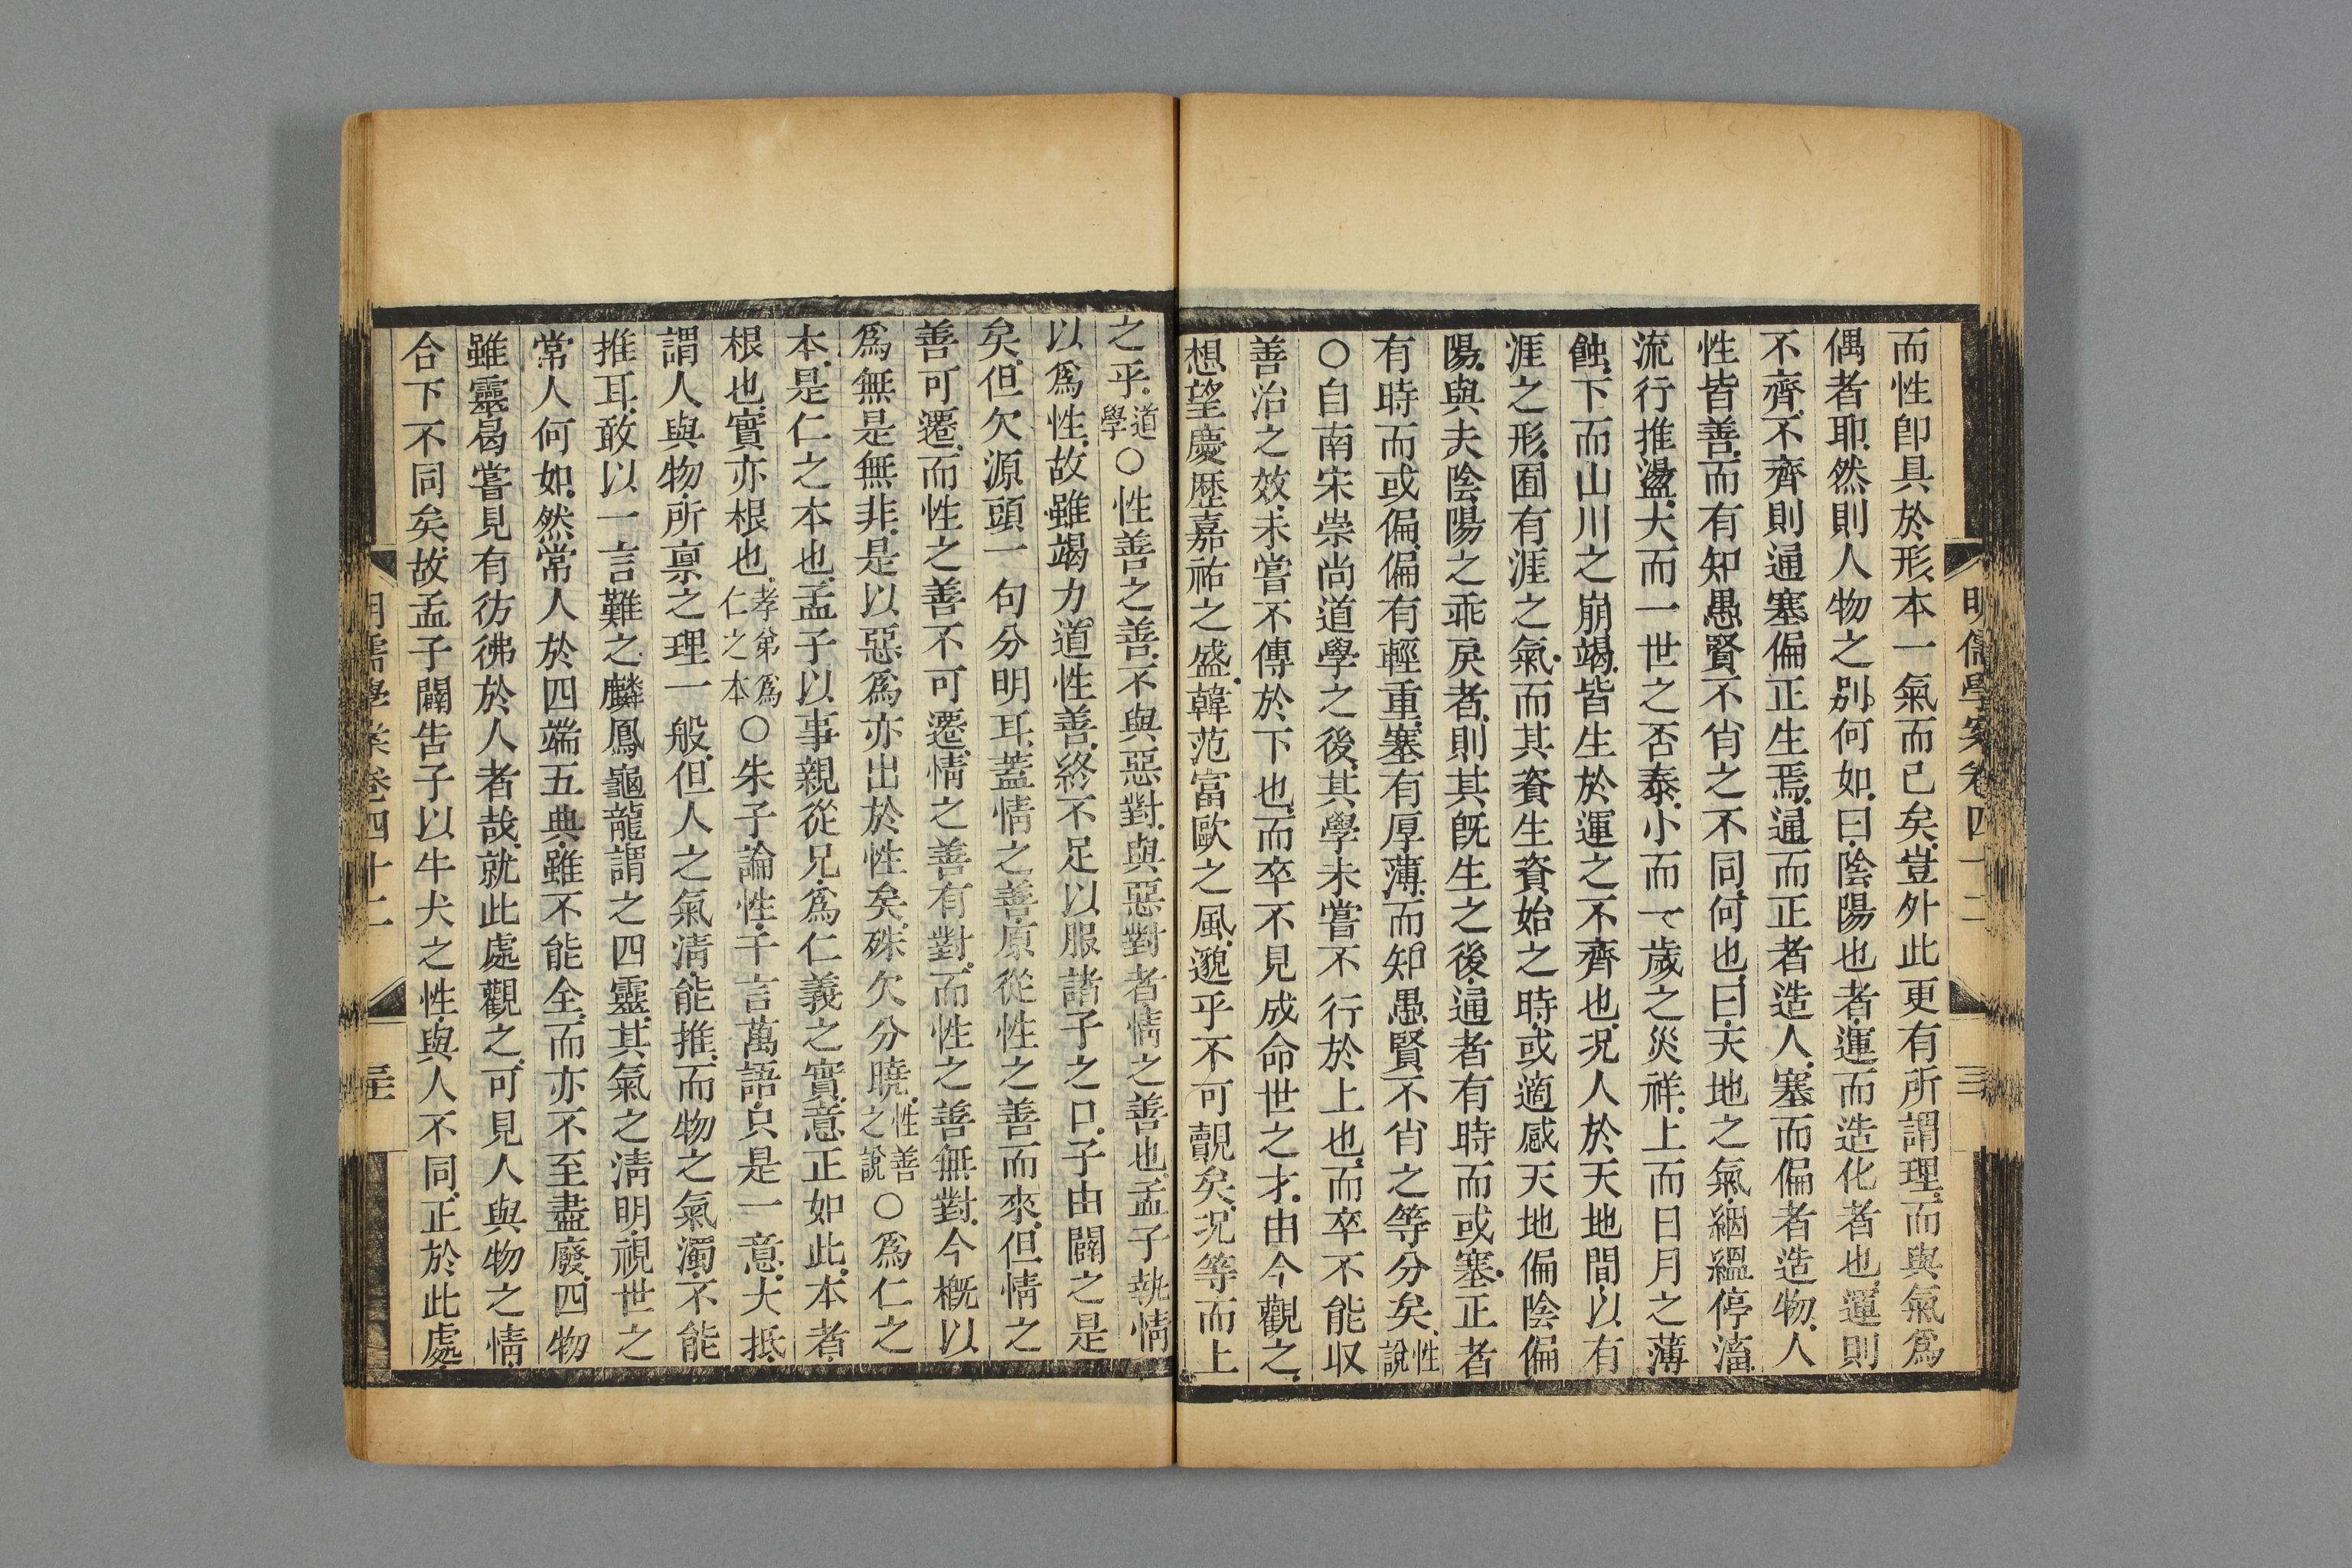 而性卽具於形、本一氣而已矣、豈外此更有所謂理、而與氣爲
偶者耶、然則人物之別、何如、曰、陰陽也者、運而造化者也、運則
不齊、不齊則通塞偏正生焉、通而正者造人、塞而偏者造物、人
性皆善、而有知愚賢不肖之不同、何也、曰、天地之氣、絪縕停滀、
流行推盪、大而一世之否泰、小而一歲之災祥、上而日月之薄
蝕、下而山川之崩竭、皆生於運之不齊也、況人於天地間、以有
涯之形、囿有涯之氣、而其資生資始之時、或適感天地偏陰偏
陽、與夫陰陽之乖戾者、則其旣生之後、通者有時而或塞、正者
有時而或偏、偏有輕重、塞有厚薄、而知愚賢不肖之等分矣、性說
○自南宋崇尚道學之後、其學未嘗不行於上也、而卒不能収
善治之效、未嘗不傳於下也、而卒不見成命世之才、由今觀之、
想望慶歷嘉祐之盛、韓范富歐之風、邈乎不可覩矣、況等而上
之乎、道學○性善之善、不與惡對、與惡對者、情之善也、孟子執情
以爲性、故雖竭力道性善、終不足以服諸子之口、子由闢之是
矣、但欠源頭一句分明耳、蓋情之善、原從性之善而來、但情之
善可遷、而性之善不可遷、情之善有對、而性之善無對、今概以
爲無是無非、是以惡爲亦出於性矣、殊欠分曉、性善之說○爲仁之
本、是仁之本也、孟子以事親從兄、爲仁義之實、意正如此、本者、
根也、實亦根也、孝弟爲仁之本○朱子論性、千言萬語、只是一意、大抵、
謂人與物、所禀之理一般、但人之氣清、能推、而物之氣濁、不能
推耳、敢以一言難之、麟鳳龜龍、謂之四靈、其氣之清明、視世之
常人何如、然常人於四端五典、雖不能全、而亦不至盡廢、四物
雖靈、曷嘗見有彷彿於人者哉、就此處觀之、可見人與物之情、
合下不同矣、故孟子闢告子以牛犬之性、與人不同、正於此處、
明儒學案卷四十二